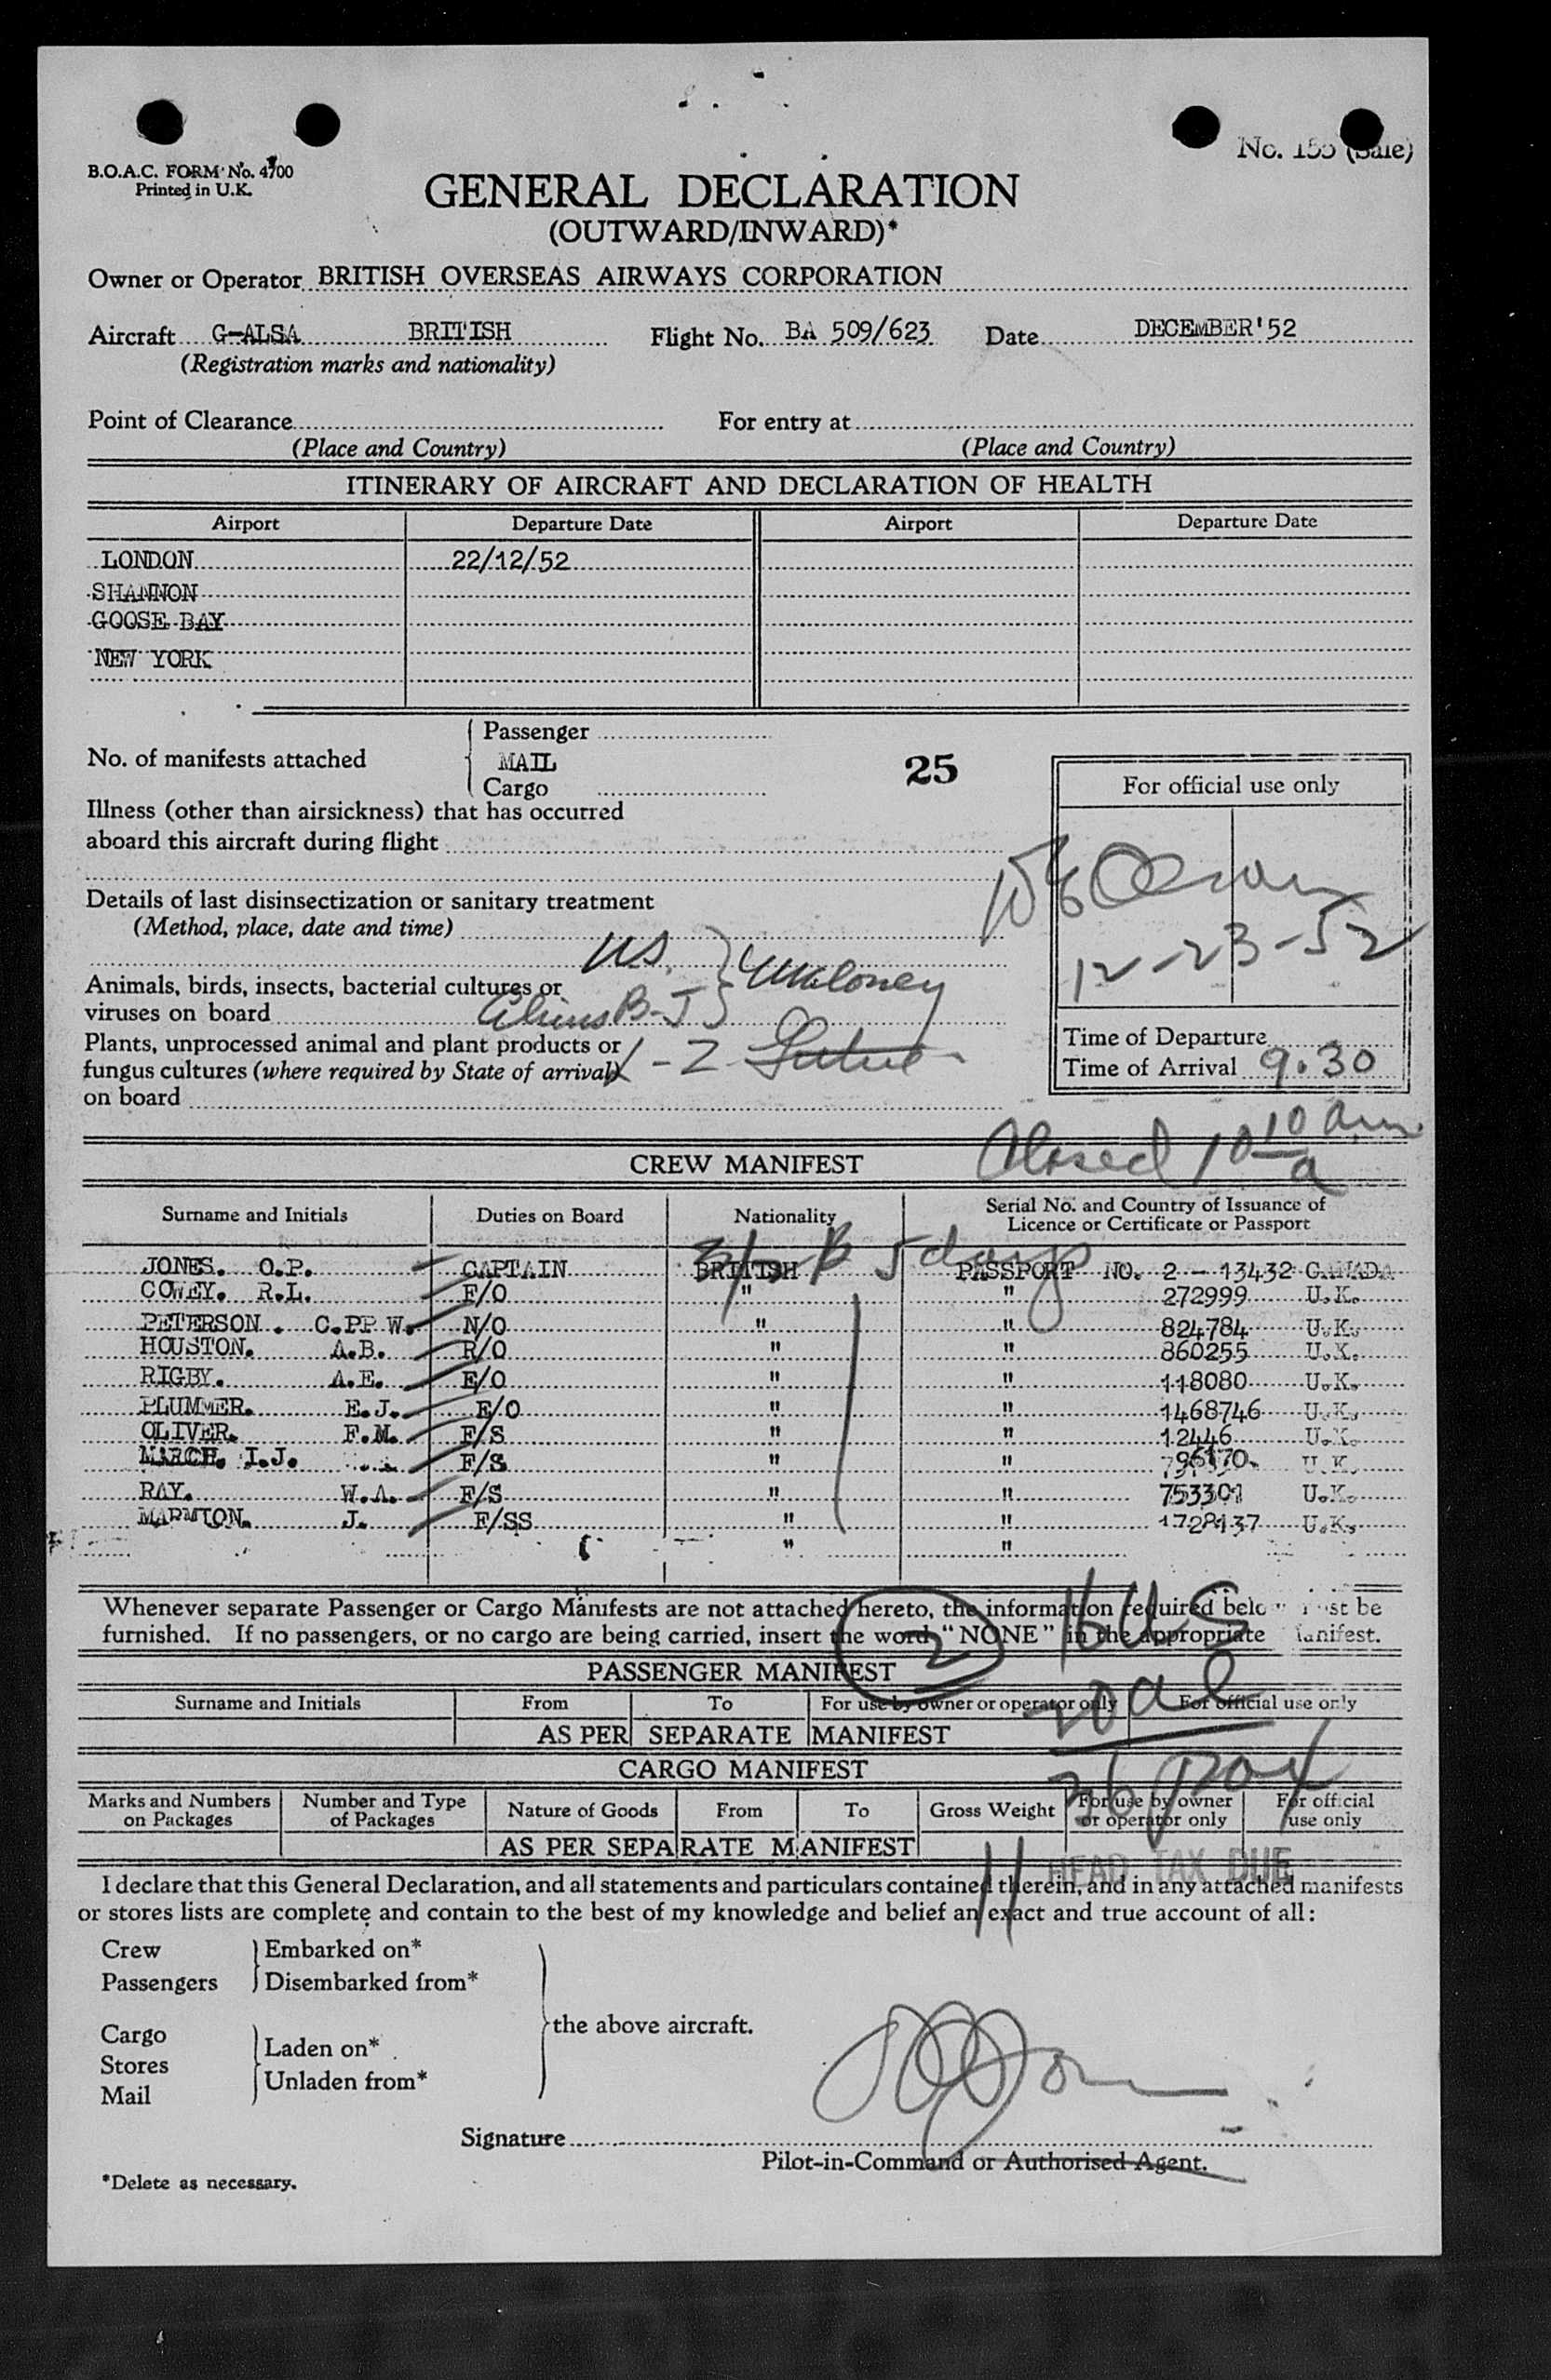 No. 155 (Sale)
B.O.A.C. FORM No. 4700
Printed in U.K.
GENERAL DECLARATION
(OUTWARD/INWARD)*
Owner or Operator BRITISH OVERSEAS AIRWAYS CORPORATION
Aircraft G-ALSA BRITISH Flight No. BA 509/623 Date DECEMBER'52
(Registration marks and nationality)
Point of Clearance For entry at
(Place and Country) (Place and Country)
ITINERARY OF AIRCRAFT AND DECLARATION OF HEALTH
Airport Departure Date Airport Departure Date
LONDON 22/12/52
SHANNON
GOOSE BAY
NEW YORK
Passenger
No. of manifests attached MAIL 25
Cargo
For official use only
Illness (other than airsickness) that has occurred
aboard this aircraft during flight
Details of last disinsectization or sanitary treatment
(Method, place, date and time)
12-23-52
US. Maloney
Animals, birds, insects, bacterial cultures or
viruses on board Aliens B-J
Plants, unprocessed animal and plant products or
fungus cultures (where required by State of arrival) - Z
on board
Time of Departure
Time of Arrival 9.30
Closed 10 10 a.m.
a
CREW MANIFEST
Surname and Initials Duties on Board Nationality Serial No. and Country of Issuance of
Licence or Certificate or Passport
B 5 days
JONES. O.P. CAPTAIN BRITISH PASSPORT NO. 2 - 13432 CANADA
COWEY. R.L. F/O " " 272999 U.K.
PETERSON. C.PP W. N/O " " 824784 U.K.
HOUSTON. A.B. R/O " " 860255 U.K.
RIGBY. A.E. E/O " " 118080 U.K.
PLUMMER. E.J. E/O " " 1468746 U.K.
OLIVER. F.M. F/S " " 12446 U.K.
MARCH. I.J. F/S " " U.K.
RAY. W.A. F/S " " 753301 U.K.
MARMION. J. F/SS " " 1728137 U.K.
" "
Whenever separate Passenger or Cargo Manifests are not attached hereto, the information required below must be
furnished. If no passengers, or no cargo are being carried, insert the word "NONE" in the appropriate Manifest.
2
16 US
20 al
36 pax
PASSENGER MANIFEST
Surname and Initials From To For use by owner or operator only For official use only
AS PER SEPARATE MANIFEST
CARGO MANIFEST
Marks and Numbers on Packages Number and Type of Packages Nature of Goods From To Gross Weight For use by owner or operator only For official use only
AS PER SEPARATE MANIFEST
11 HEAD TAX DUE
I declare that this General Declaration, and all statements and particulars contained therein, and in any attached manifests
or stores lists are complete and contain to the best of my knowledge and belief an exact and true account of all:
Crew Embarked on*
Passengers Disembarked from*
the above aircraft.
Cargo
Stores Laden on*
Mail Unladen from*
Signature
Pilot-in-Command or Authorised Agent.
*Delete as necessary.